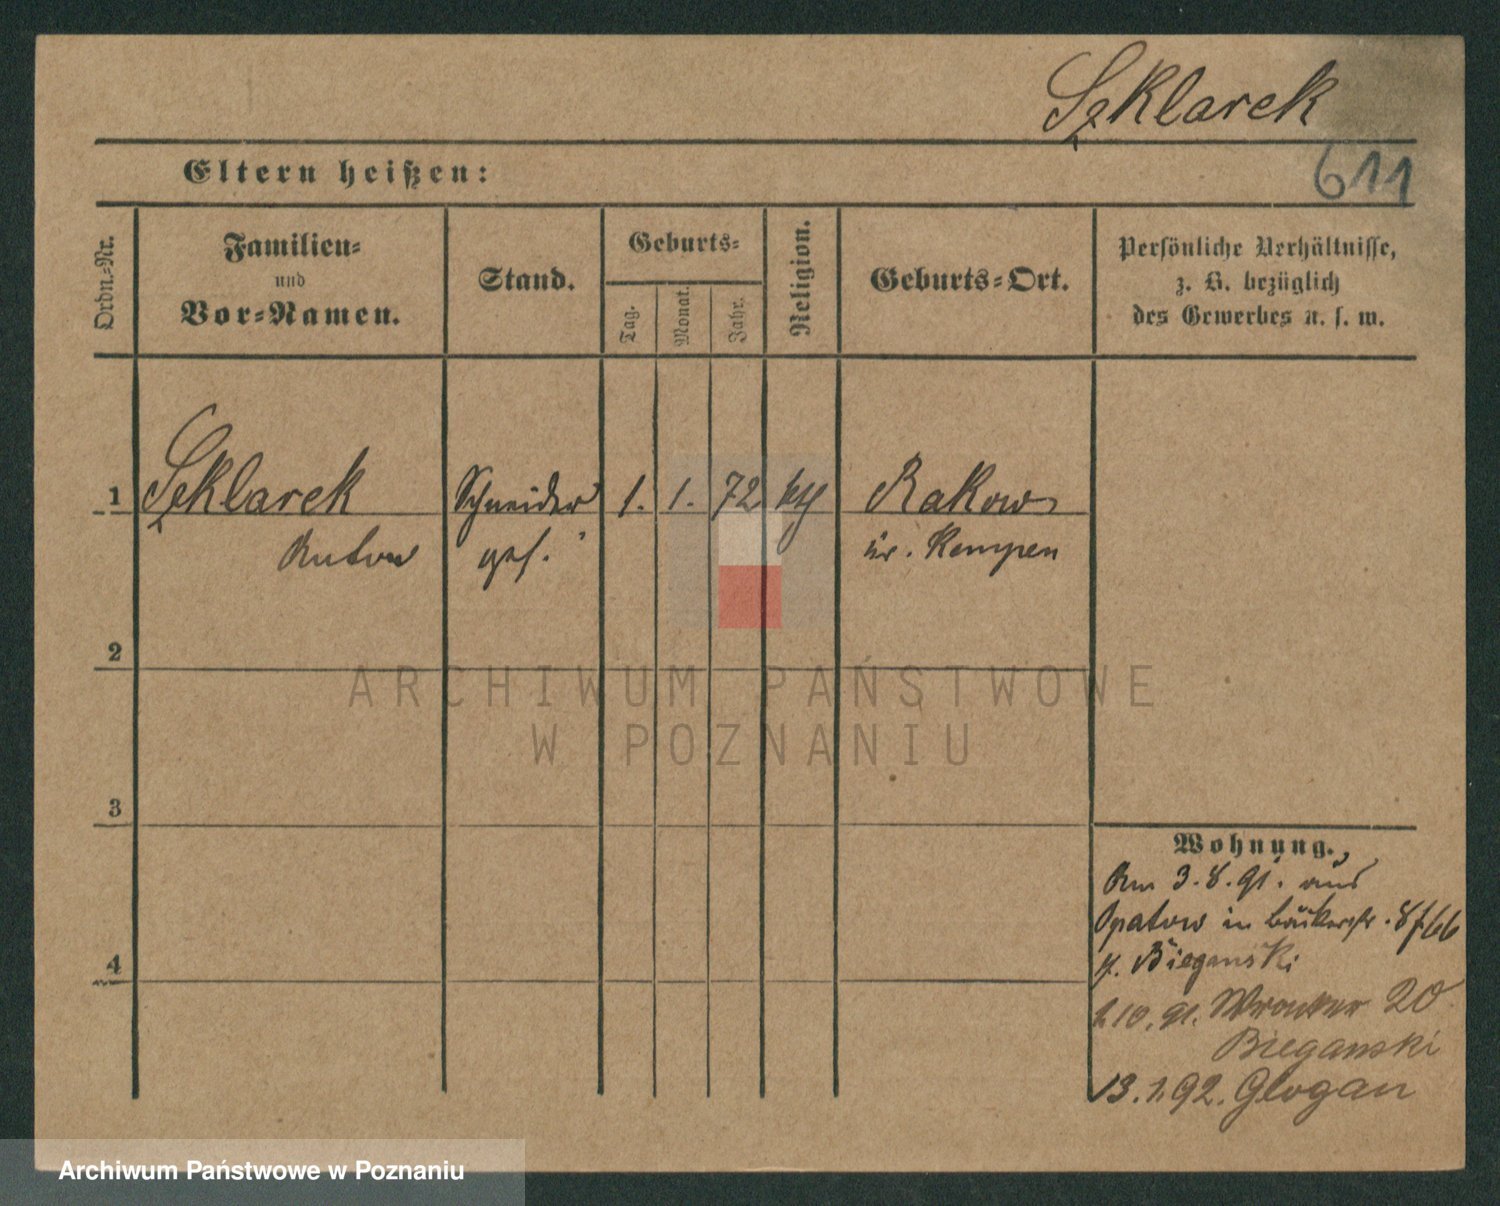 Szklarek
611
Eltern heißen:
Ordn.-Nr.
Familien-
und
Vor-Namen.
Stand.
Geburts-
Tag.
Monat.
Jahr.
Religion.
Geburts-Ort.
Persönliche Verhältnisse,
z. B. bezüglich
des Gewerbes u. s. w.
1 Szklarek Schneider 1. 1. 72 kth Rakow
Anton ges. kr. Kempen
2
3
4
Wohnung.
Am 3.8.91. aus
Opatow in Bäckerstr. 8
b. Bieganski
1.10.91. Wronker 20
Bieganski
13.1.92. Glogau
ARCHIWUM PAŃSTWOWE
W POZNANIU
Archiwum Państwowe w Poznaniu